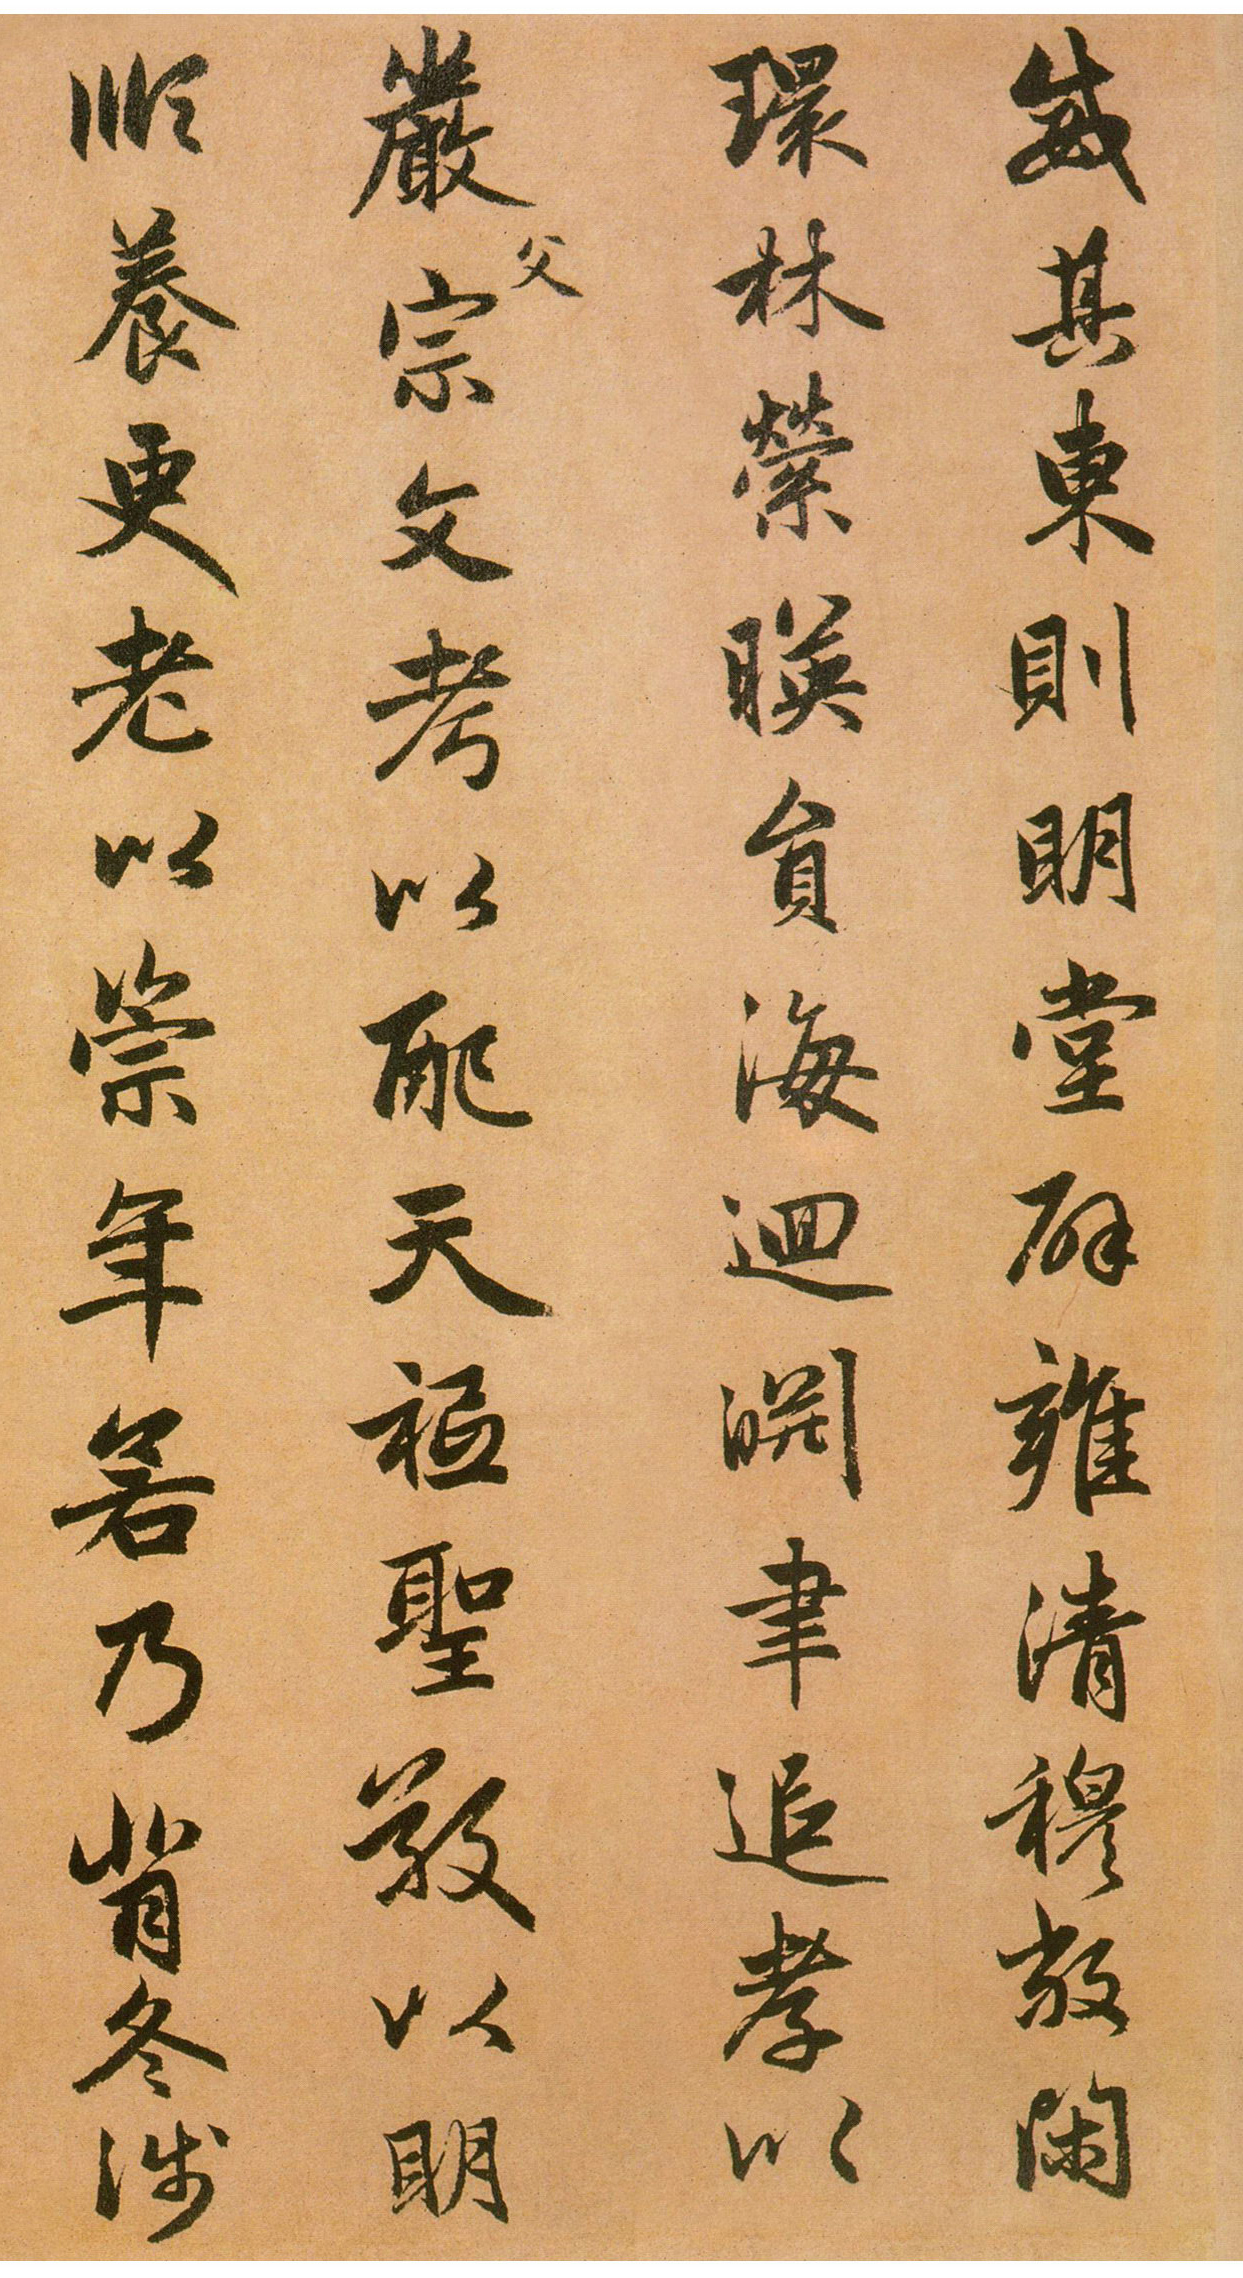 威其東則明堂辟雍清穆敞閑
環林縈暎貟海迴淵聿追孝以
嚴父宗文考以配天祗聖敬以明
順養更老以崇年若乃背冬涉